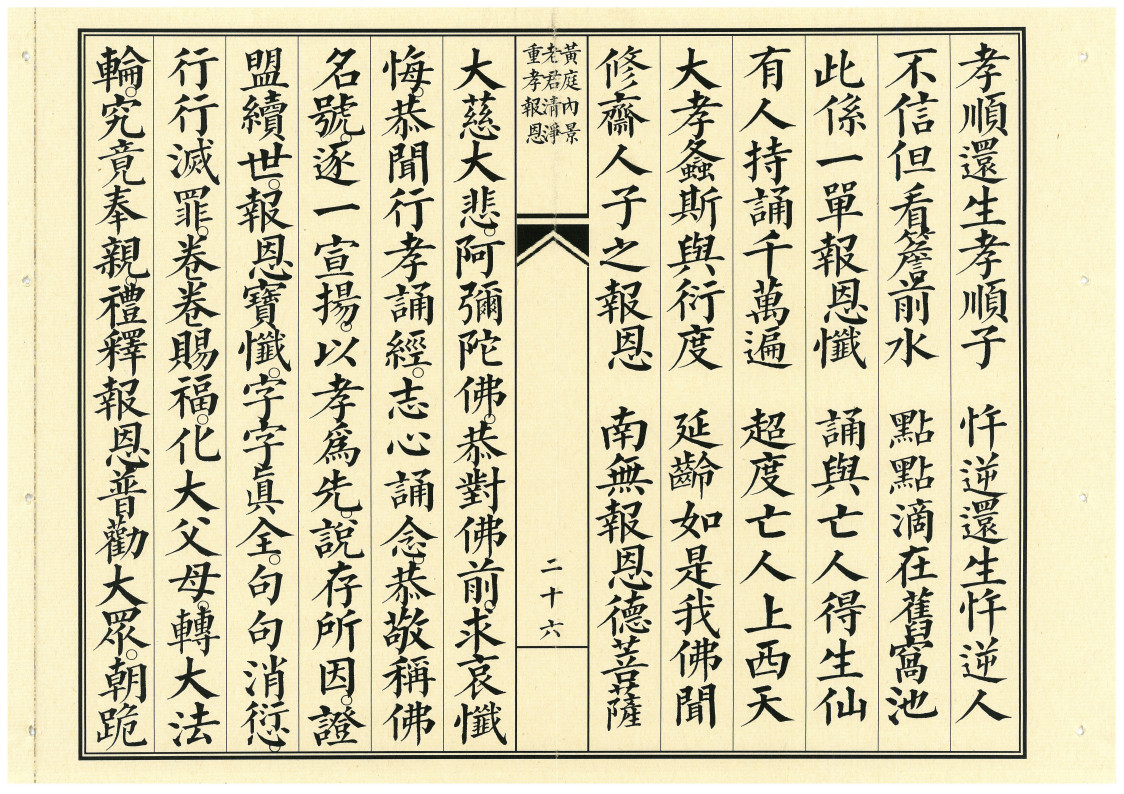 孝順還生孝順子　忤逆還生忤逆人
不信但看簷前水　點點滴在舊窩池
此係一單報恩懺　誦與亡人得生仙
有人持誦千萬遍　超度亡人上西天
大孝螽斯與衍度　延齡如是我佛聞
修齋人子之報恩　南無報恩德菩薩
黃庭內景
老君清淨
重孝報恩
二十六
大慈大悲。阿彌陀佛。恭對佛前。求哀懺
悔。恭聞行孝誦經。志心誦念。恭敬稱佛
名號。逐一宣揚。以孝爲先。說存所因。證
盟續世。報恩寶懺。字字眞全。句句消愆。
行行滅罪。卷卷賜福。化大父母。轉大法
輪。究竟奉親。禮釋報恩。普勸大眾。朝跪